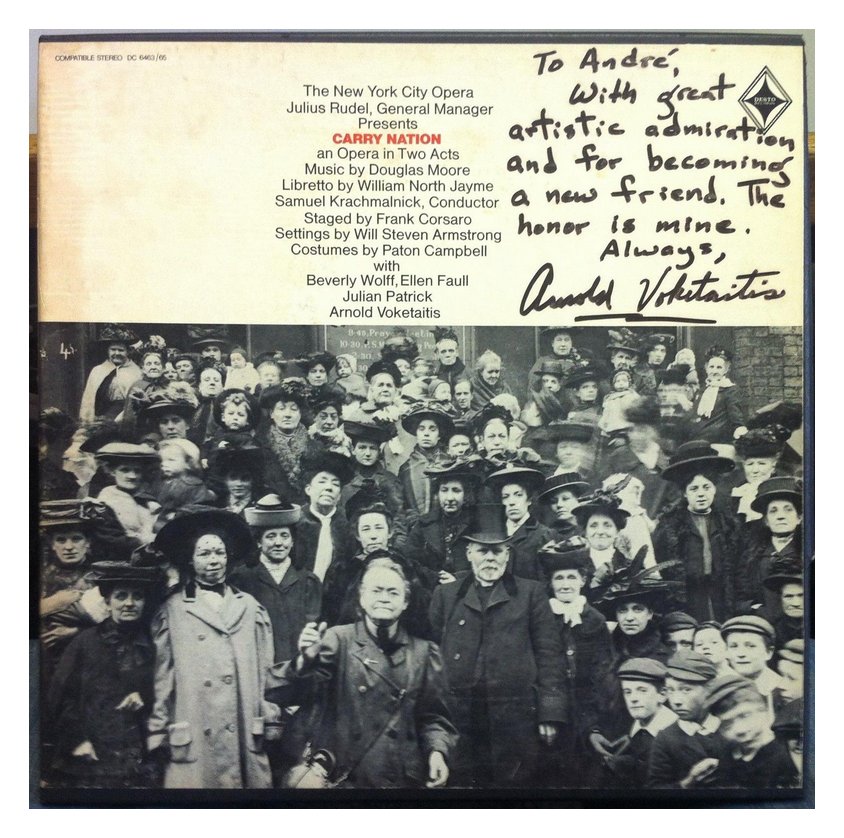 COMPATIBLE STEREO DC 6463/65
The New York City Opera
Julius Rudel, General Manager
Presents
CARRY NATION
an Opera in Two Acts
Music by Douglas Moore
Libretto by William North Jayme
Samuel Krachmalnick, Conductor
Staged by Frank Corsaro
Settings by Will Steven Armstrong
Costumes by Paton Campbell
with
Beverly Wolff, Ellen Faull
Julian Patrick
Arnold Voketaitis
To André,
With great
artistic admiration
and for becoming
a new friend. The
honor is mine.
Always,
Arnold Voketaitis
DESTO
8-45. Pray
10-30.
2-30.